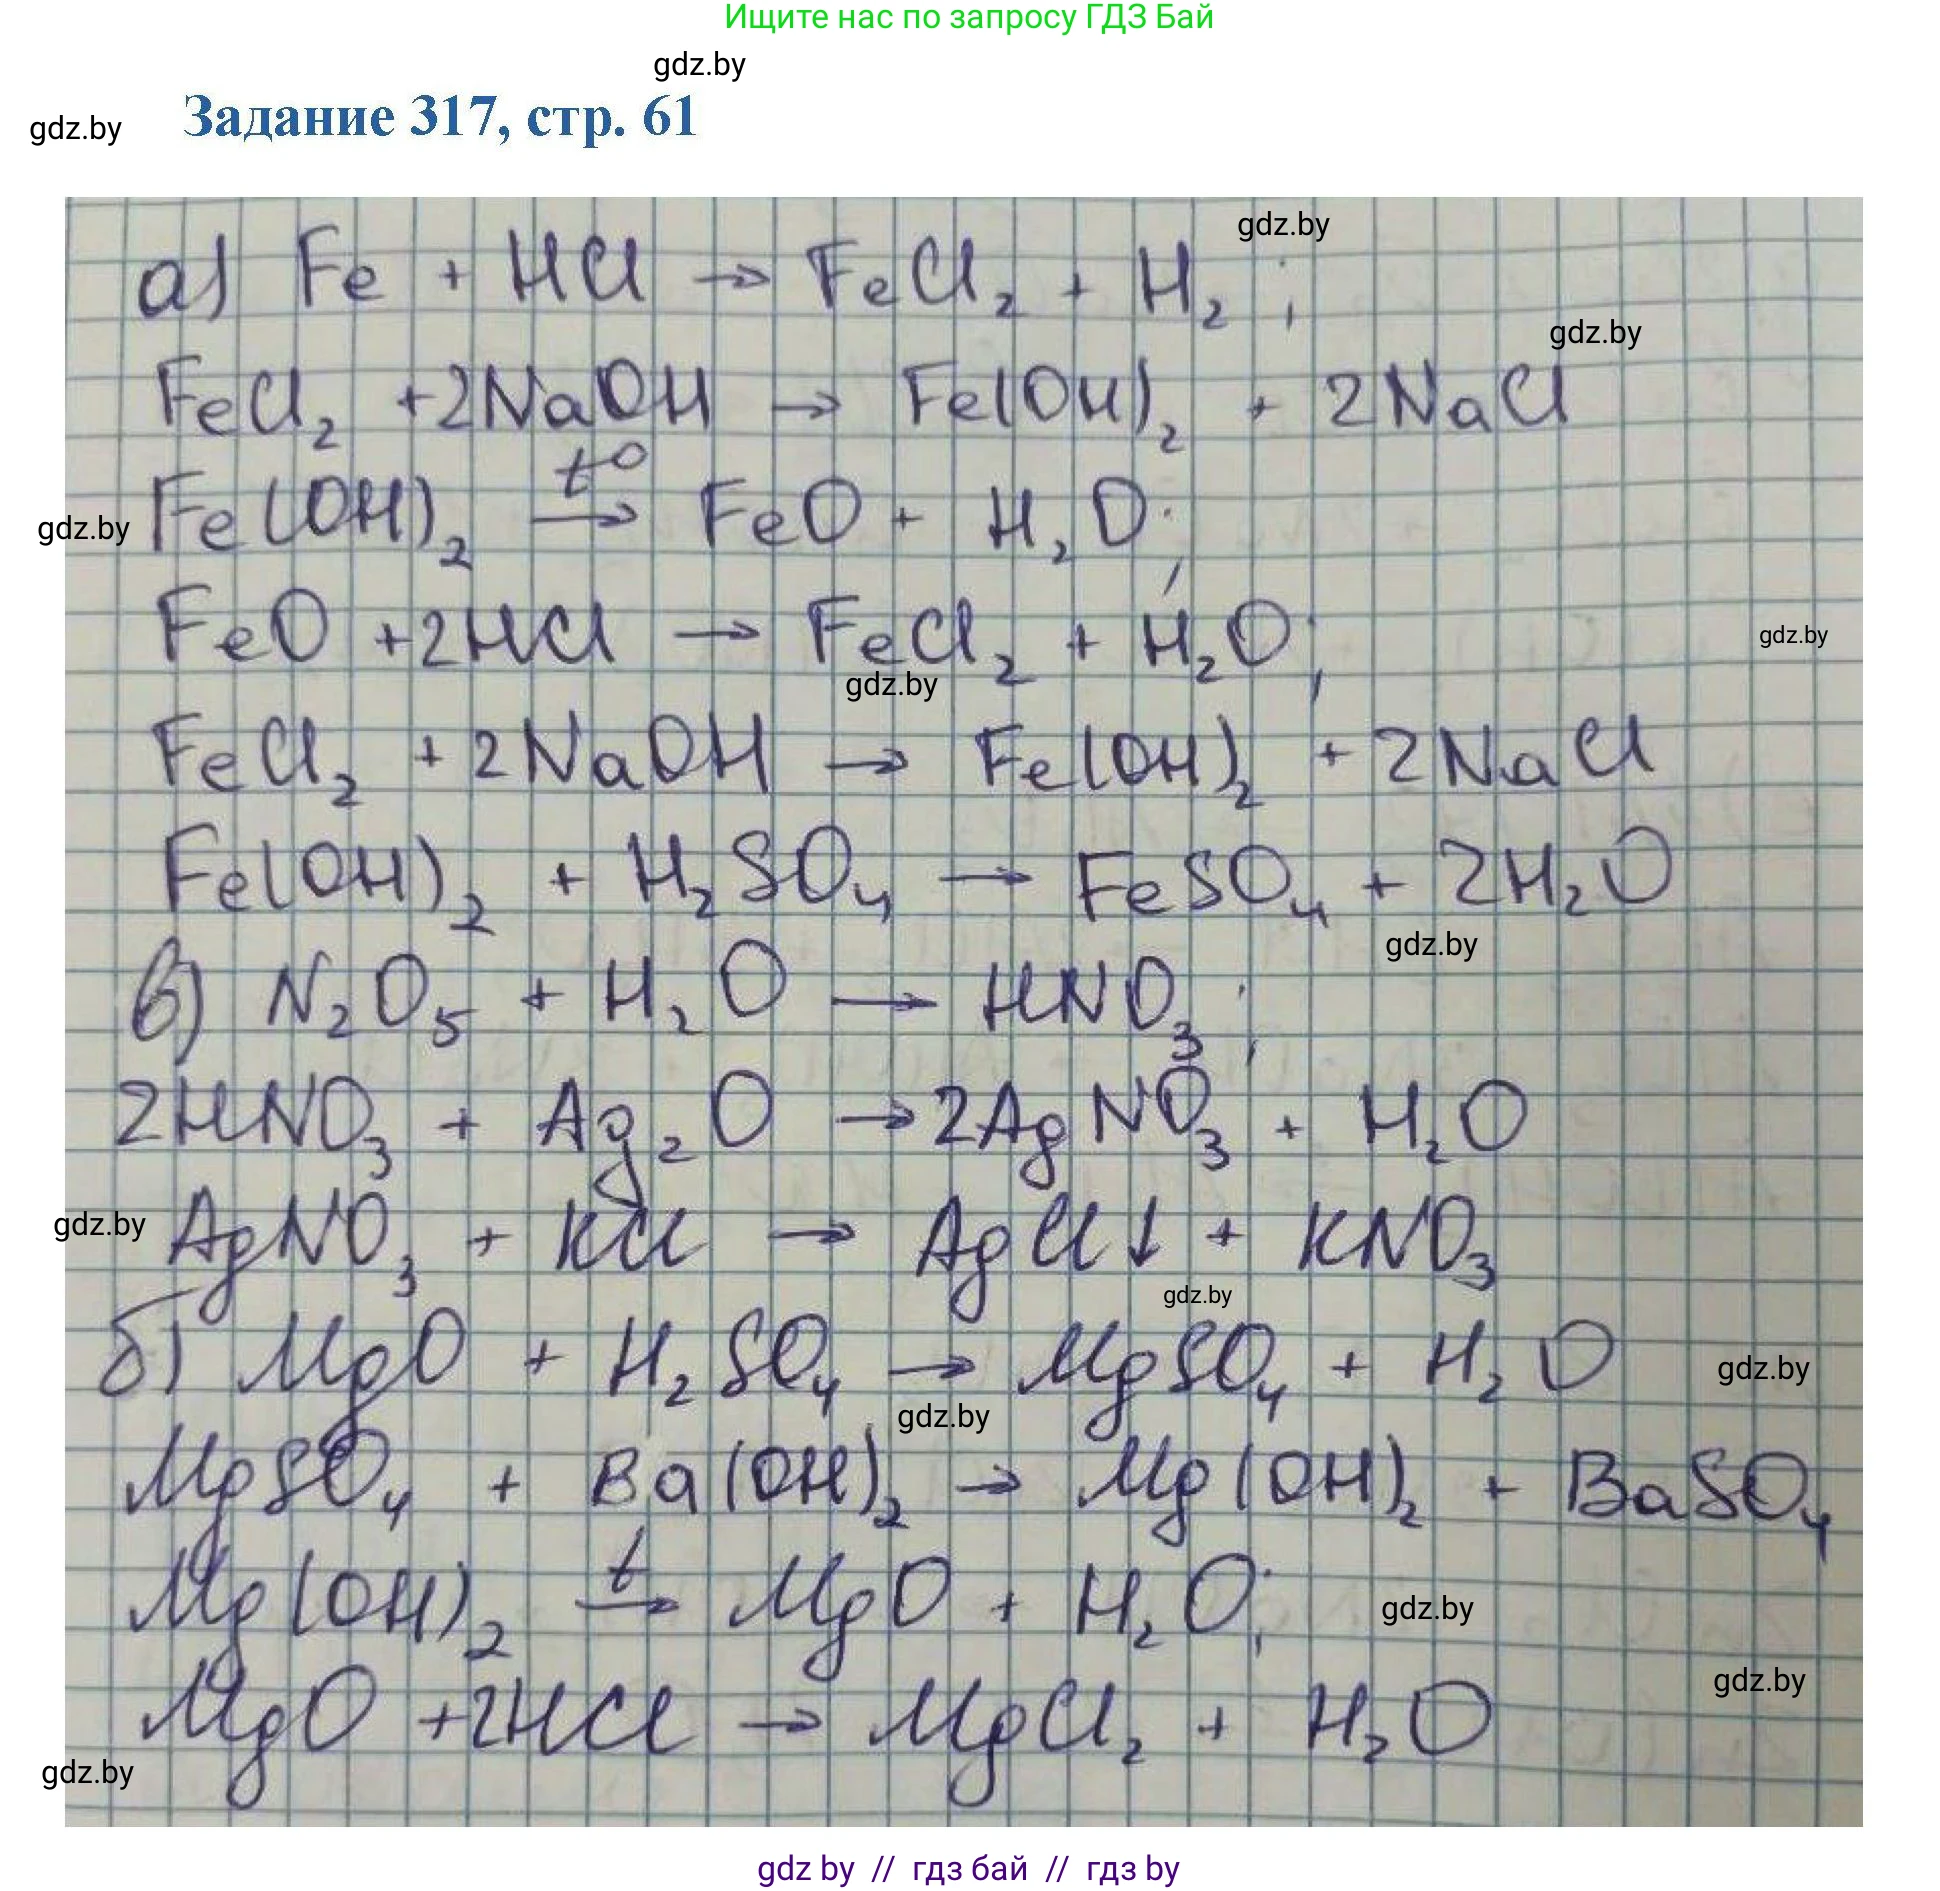 Ищите нас по запросу ГДЗ Бай
gdz.by
gdz.by
Задание 317, стр. 61
gdz.by
а) Fe + HCl → FeCl₂ + H₂ ;
gdz.by
FeCl₂ +2NaOH → Fe(OH)₂ + 2NaCl
gdz.by
Fe(OH)₂ t⁰→ FeO + H₂O;
FeO +2HCl → FeCl₂ + H₂O;
gdz.by
gdz.by
FeCl₂ + 2NaOH → Fe(OH)₂ + 2NaCl
Fe(OH)₂ + H₂SO₄ → FeSO₄ + 2H₂O
gdz.by
в) N₂O₅ + H₂O → HNO₃ ;
2HNO₃ + Ag₂O → 2AgNO₃ + H₂O
gdz.by
AgNO₃ + KCl → AgCl↓ + KNO₃
gdz.by
б) MgO + H₂SO₄ → MgSO₄ + H₂O
gdz.by
gdz.by
MgSO₄ + Ba(OH)₂ → Mg(OH)₂ + BaSO₄
Mg(OH)₂ t→ MgO + H₂O;
gdz.by
gdz.by
MgO +2HCl → MgCl₂ + H₂O
gdz.by
gdz by // гдз бай // гдз by